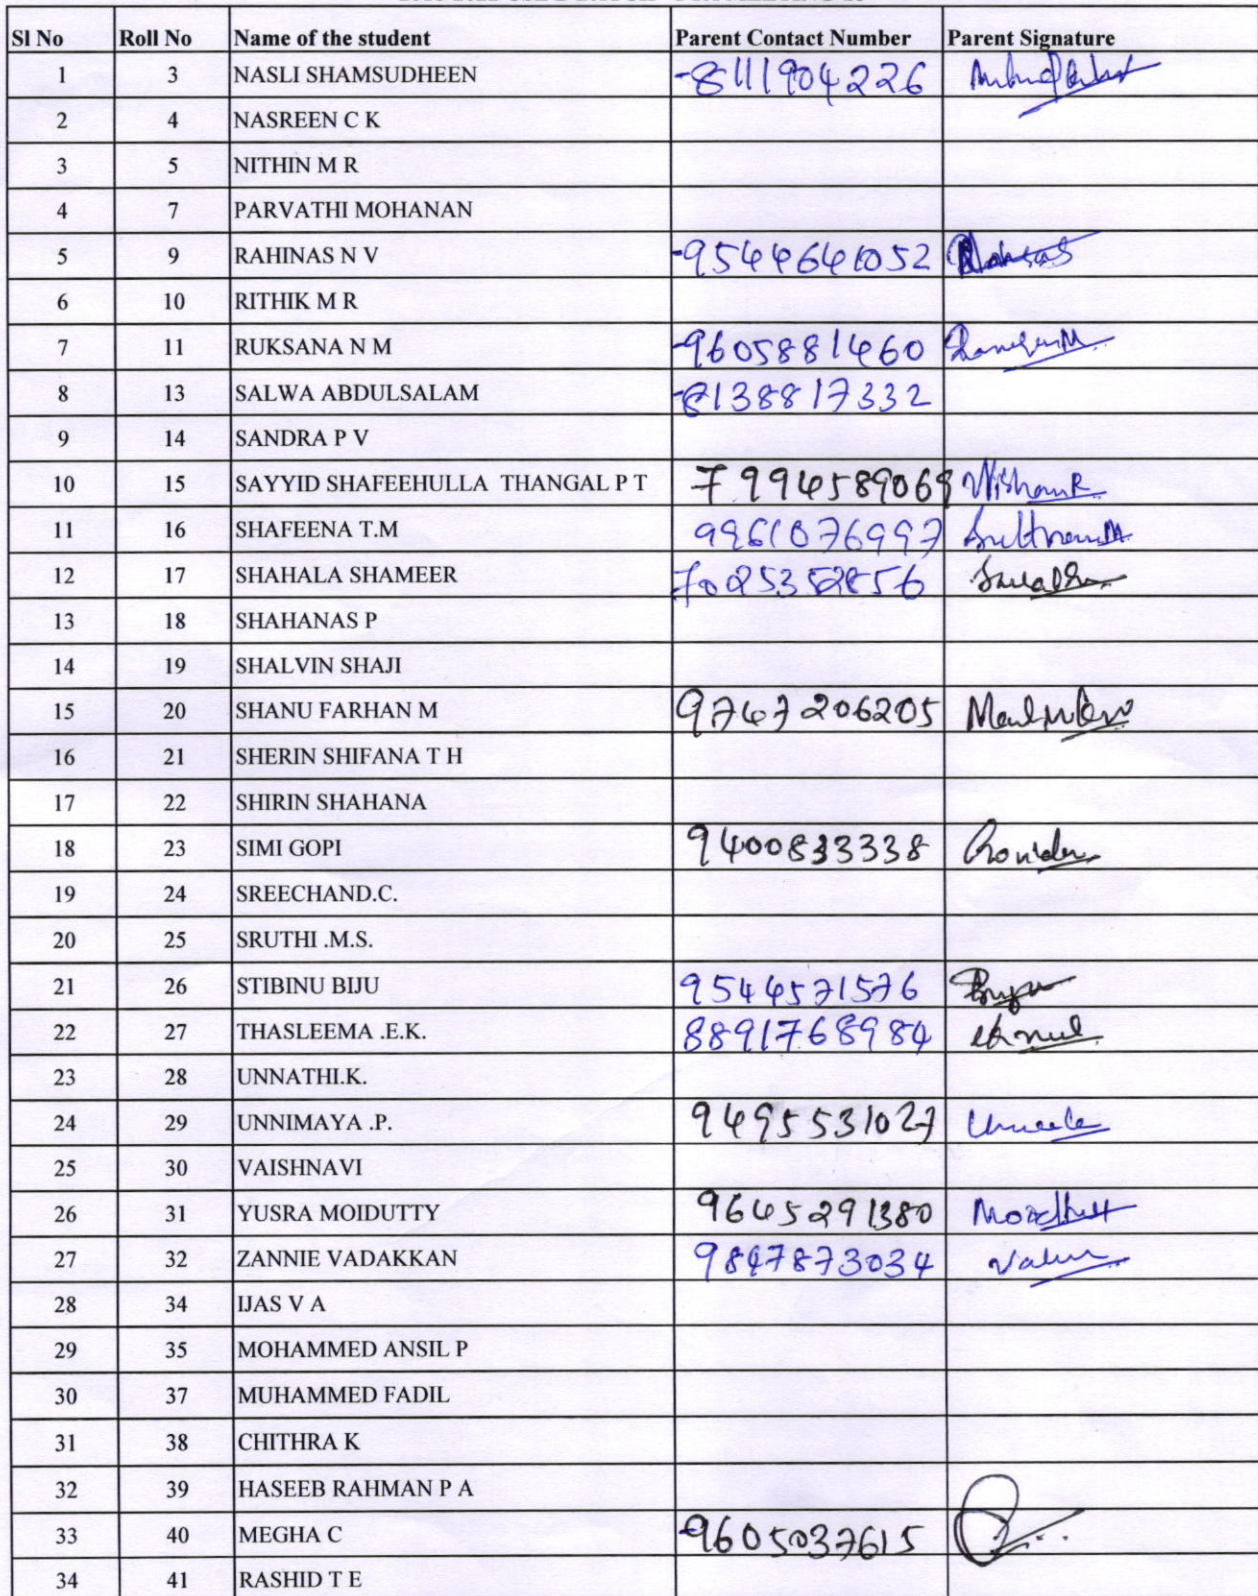 Sl No Roll No Name of the student Parent Contact Number Parent Signature
1 3 NASLI SHAMSUDHEEN 8111904226
2 4 NASREEN C K
3 5 NITHIN M R
4 7 PARVATHI MOHANAN
5 9 RAHINAS N V 9544641052
6 10 RITHIK M R
7 11 RUKSANA N M 9605881460
8 13 SALWA ABDULSALAM 8138817332
9 14 SANDRA P V
10 15 SAYYID SHAFEEHULLA THANGAL P T 7994589069
11 16 SHAFEENA T.M 9961076997
12 17 SHAHALA SHAMEER
13 18 SHAHANAS P
14 19 SHALVIN SHAJI
15 20 SHANU FARHAN M 9747206205
16 21 SHERIN SHIFANA T H
17 22 SHIRIN SHAHANA
18 23 SIMI GOPI 9400833338
19 24 SREECHAND.C.
20 25 SRUTHI .M.S.
21 26 STIBINU BIJU 9544571576
22 27 THASLEEMA .E.K. 8891768984
23 28 UNNATHI.K.
24 29 UNNIMAYA .P. 9495531027
25 30 VAISHNAVI
26 31 YUSRA MOIDUTTY 9645291380
27 32 ZANNIE VADAKKAN 9847873034
28 34 IJAS V A
29 35 MOHAMMED ANSIL P
30 37 MUHAMMED FADIL
31 38 CHITHRA K
32 39 HASEEB RAHMAN P A
33 40 MEGHA C 9605037615
34 41 RASHID T E